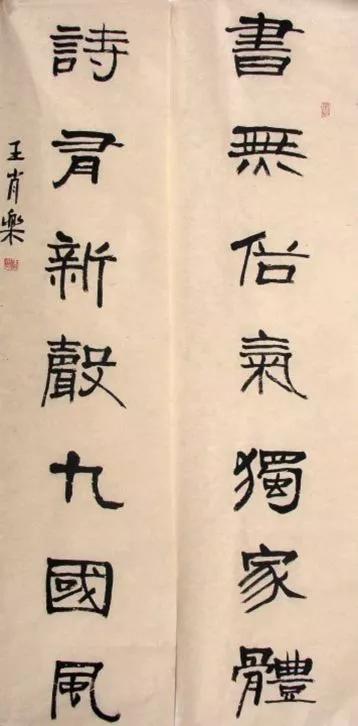 書無俗氣獨家體
詩有新聲九國風
王肖樂